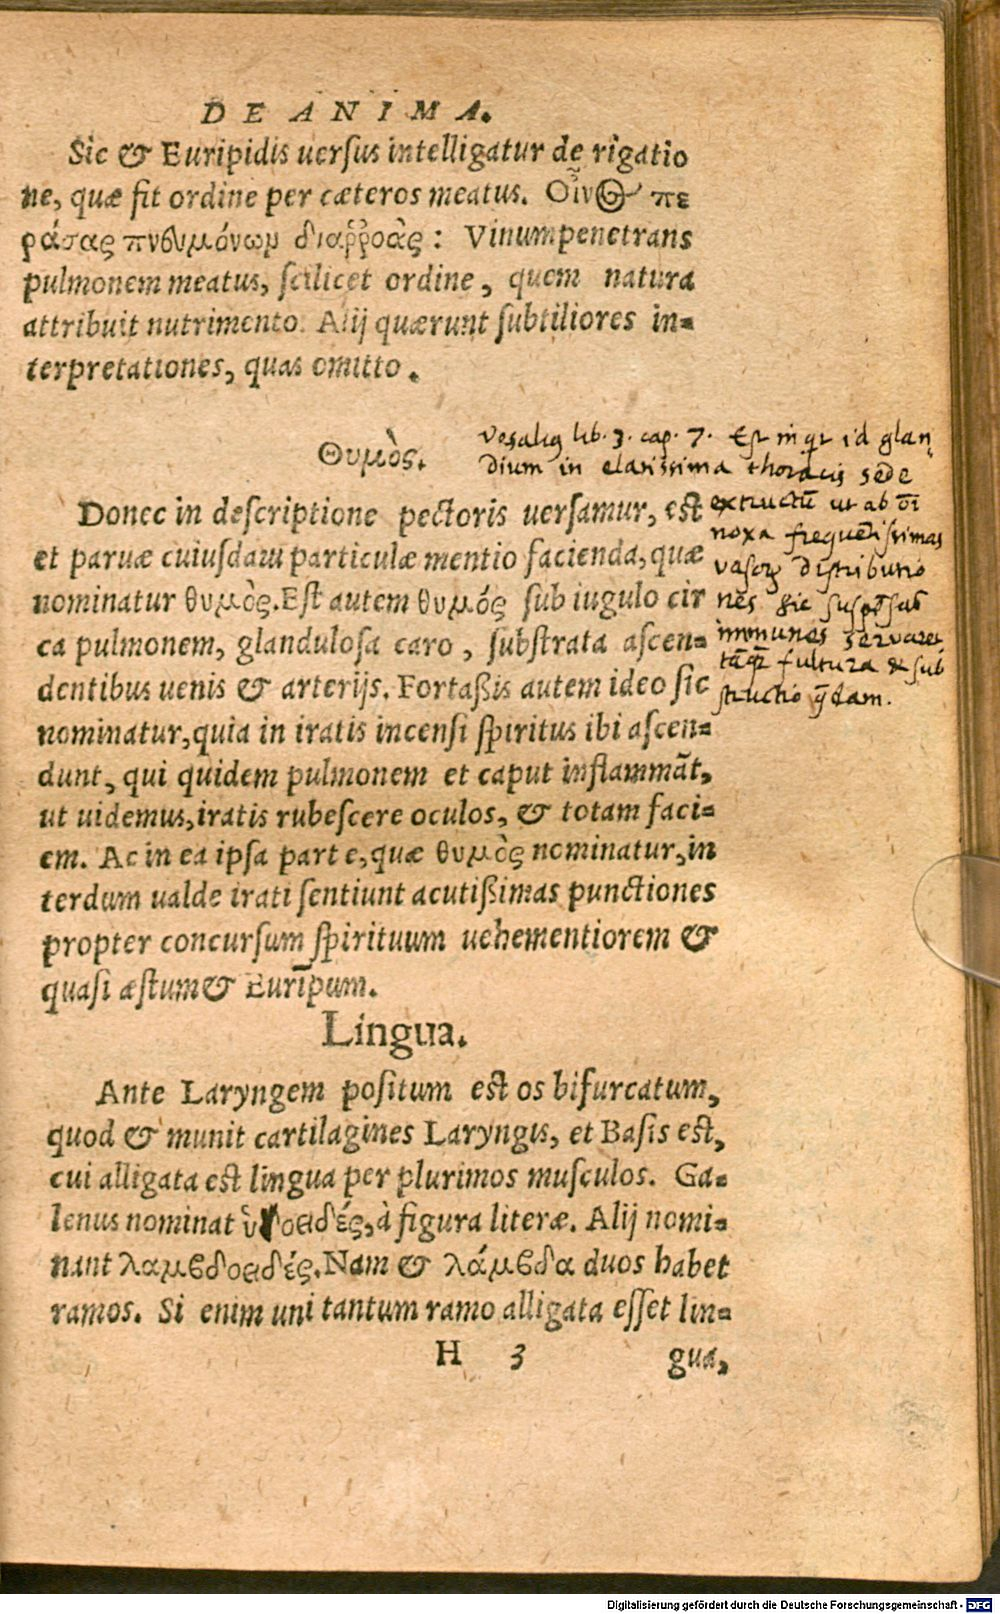 DE ANIMA.
Sic & Euripidis uersus intelligatur de rigatio
ne, quæ fit ordine per cæteros meatus. Οἶνος πε
ράσας πνευμόνων διαῤῥοὰς: Vinum penetrans
pulmonem meatus, scilicet ordine, quem natura
attribuit nutrimento. Alij quærunt subtiliores in=
terpretationes, quas omitto.
Θυμὸς.
Vesaliꝰ lib. 3. cap. 7. Est inqt id glan
dium in elatissima thoracis sede
extructū ut ab oī
noxa frequētissimas
vasorꝝ distributio
nes sic suspēsas
immunes servaret
tāqꝫ fultura & sub
structio q̄dam.
Donec in descriptione pectoris uersamur, est
et paruæ cuiusdam particulæ mentio facienda, quæ
nominatur θυμὸς. Est autem θυμός sub iugulo cir
ca pulmonem, glandulosa caro, substrata ascen=
dentibus uenis & arterijs. Fortaßis autem ideo sic
nominatur, quia in iratis incensi spiritus ibi ascen=
dunt, qui quidem pulmonem et caput inflammāt,
ut uidemus, iratis rubescere oculos, & totam faci=
em. Ac in ea ipsa parte, quæ θυμὸς nominatur, in
terdum ualde irati sentiunt acutißimas punctiones
propter concursum spirituum uehementiorem &
quasi æstum & Euripum.
Lingua.
Ante Laryngem positum est os bifurcatum,
quod & munit cartilagines Laryngis, et Basis est,
cui alligata est lingua per plurimos musculos. Ga=
lenus nominat ὑοειδές, à figura literæ. Alij nomi=
nant λαμβδοειδές. Nam & λάμβδα duos habet
ramos. Si enim uni tantum ramo alligata esset lin=
H 3 gua,
Digitalisierung gefördert durch die Deutsche Forschungsgemeinschaft - DFG